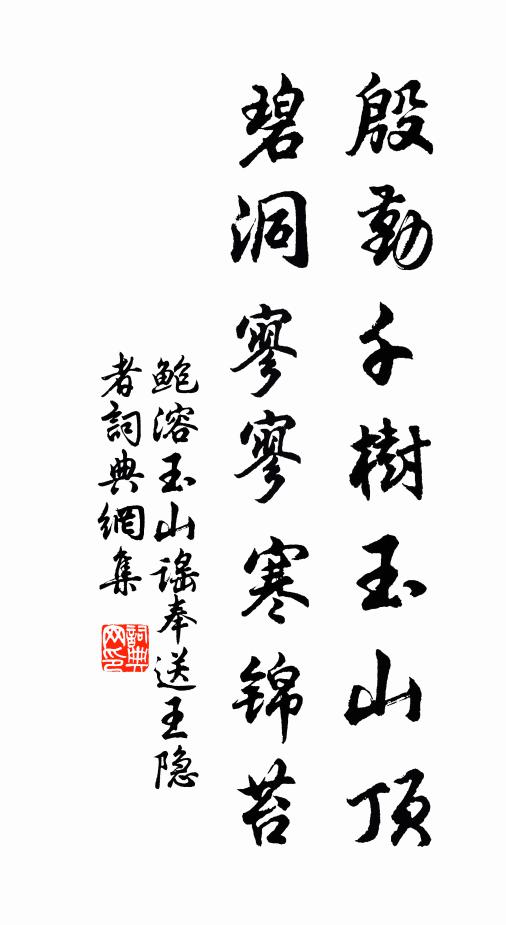 殷勤千樹玉山頂
碧洞寥寥寒锦苔
鲍溶玉山谣奉送王隐
者詞典網集
詞典
网印